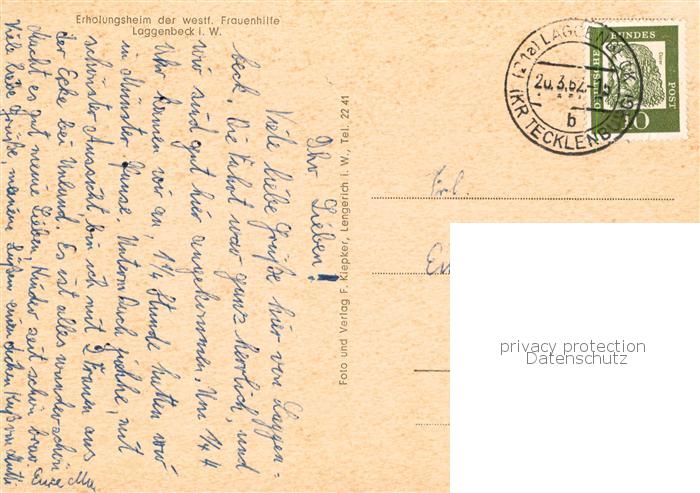 Erholungsheim der westf. Frauenhilfe
Laggenbeck i. W.
Ihr Lieben!
Viele liebe Grüße hier von Laggen-
beck. Die Fahrt war ganz herrlich, und
wir sind gut hier angekommen. Um 1/4 4
Uhr kamen wir an, 1 1/4 Stunde hatten wir
in Münster Pause. Unterm Dach juchhe, mit
schönster Aussicht bin ich mit 2 Frauen aus
der Ecke bei Unland. Es ist alles wunderschön
Macht es gut meine Lieben, Kinder seit schön brav
Viele liebe Grüße, meinem Süßen einen dicken Kuß von Mutti
Eure
Foto und Verlag F. Kiepker, Lengerich i. W., Tel. 22 41
(21a) LAGGENBECK
20.3.62
b
(KR TECKLENBURG)
BUNDES
POST
10
Frl.
privacy protection
Datenschutz